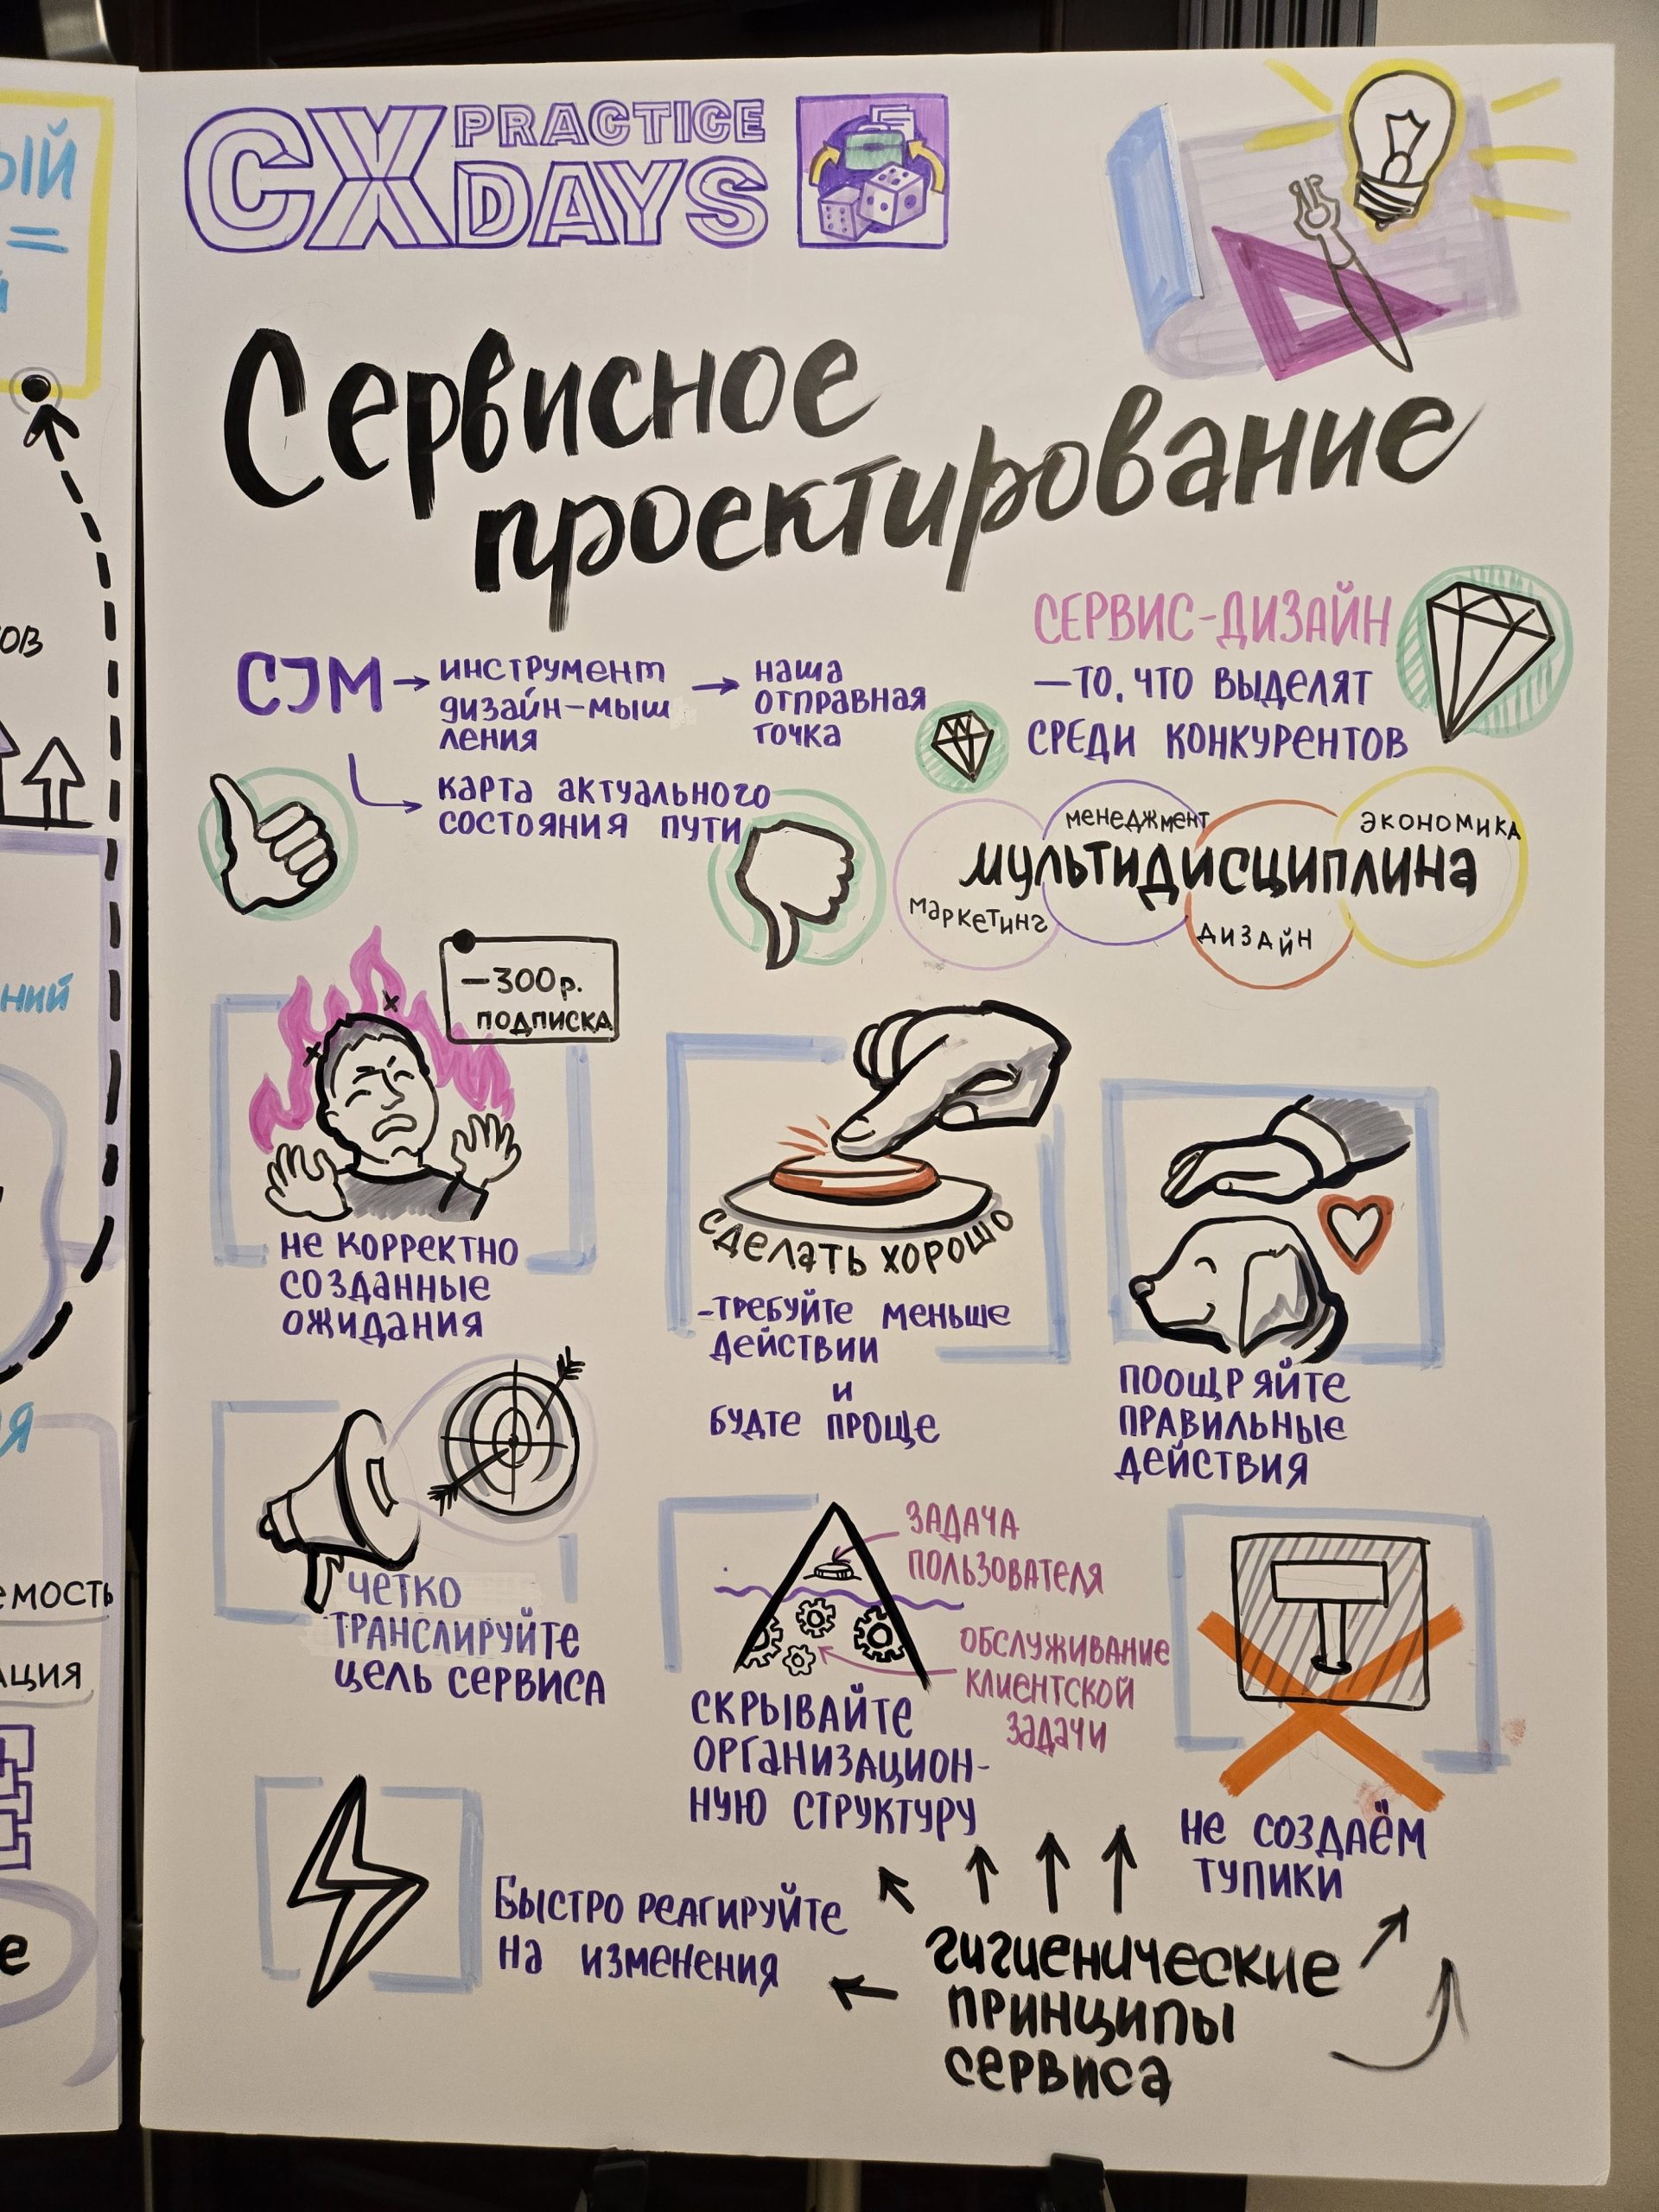 ЫЙ
=
ОВ
НИЙ
Я
ЕМОСТЬ
АЦИЯ
е
CX PRACTICE DAYS
Сервисное
проектирование
CJM → инструмент дизайн-мыш ления → наша отправная точка
карта актуального
состояния пути
СЕРВИС-ДИЗАЙН
—ТО, ЧТО ВЫДЕЛЯТ
СРЕДИ КОНКУРЕНТОВ
менеджмент
экономика
мультидисциплина
маркетинг
дизайн
—300р.
подписка
не корректно
созданные
ожидания
сделать хорошо
-требуйте меньше
действии
и
будте проще
поощряйте
правильные
действия
четко
транслируйте
цель сервиса
задача
пользователя
обслуживание
клиентской
задачи
скрывайте
организацион-
ную структуру
не создаём
тупики
Быстро реагируйте
на изменения
гигиенические
принципы
сервиса